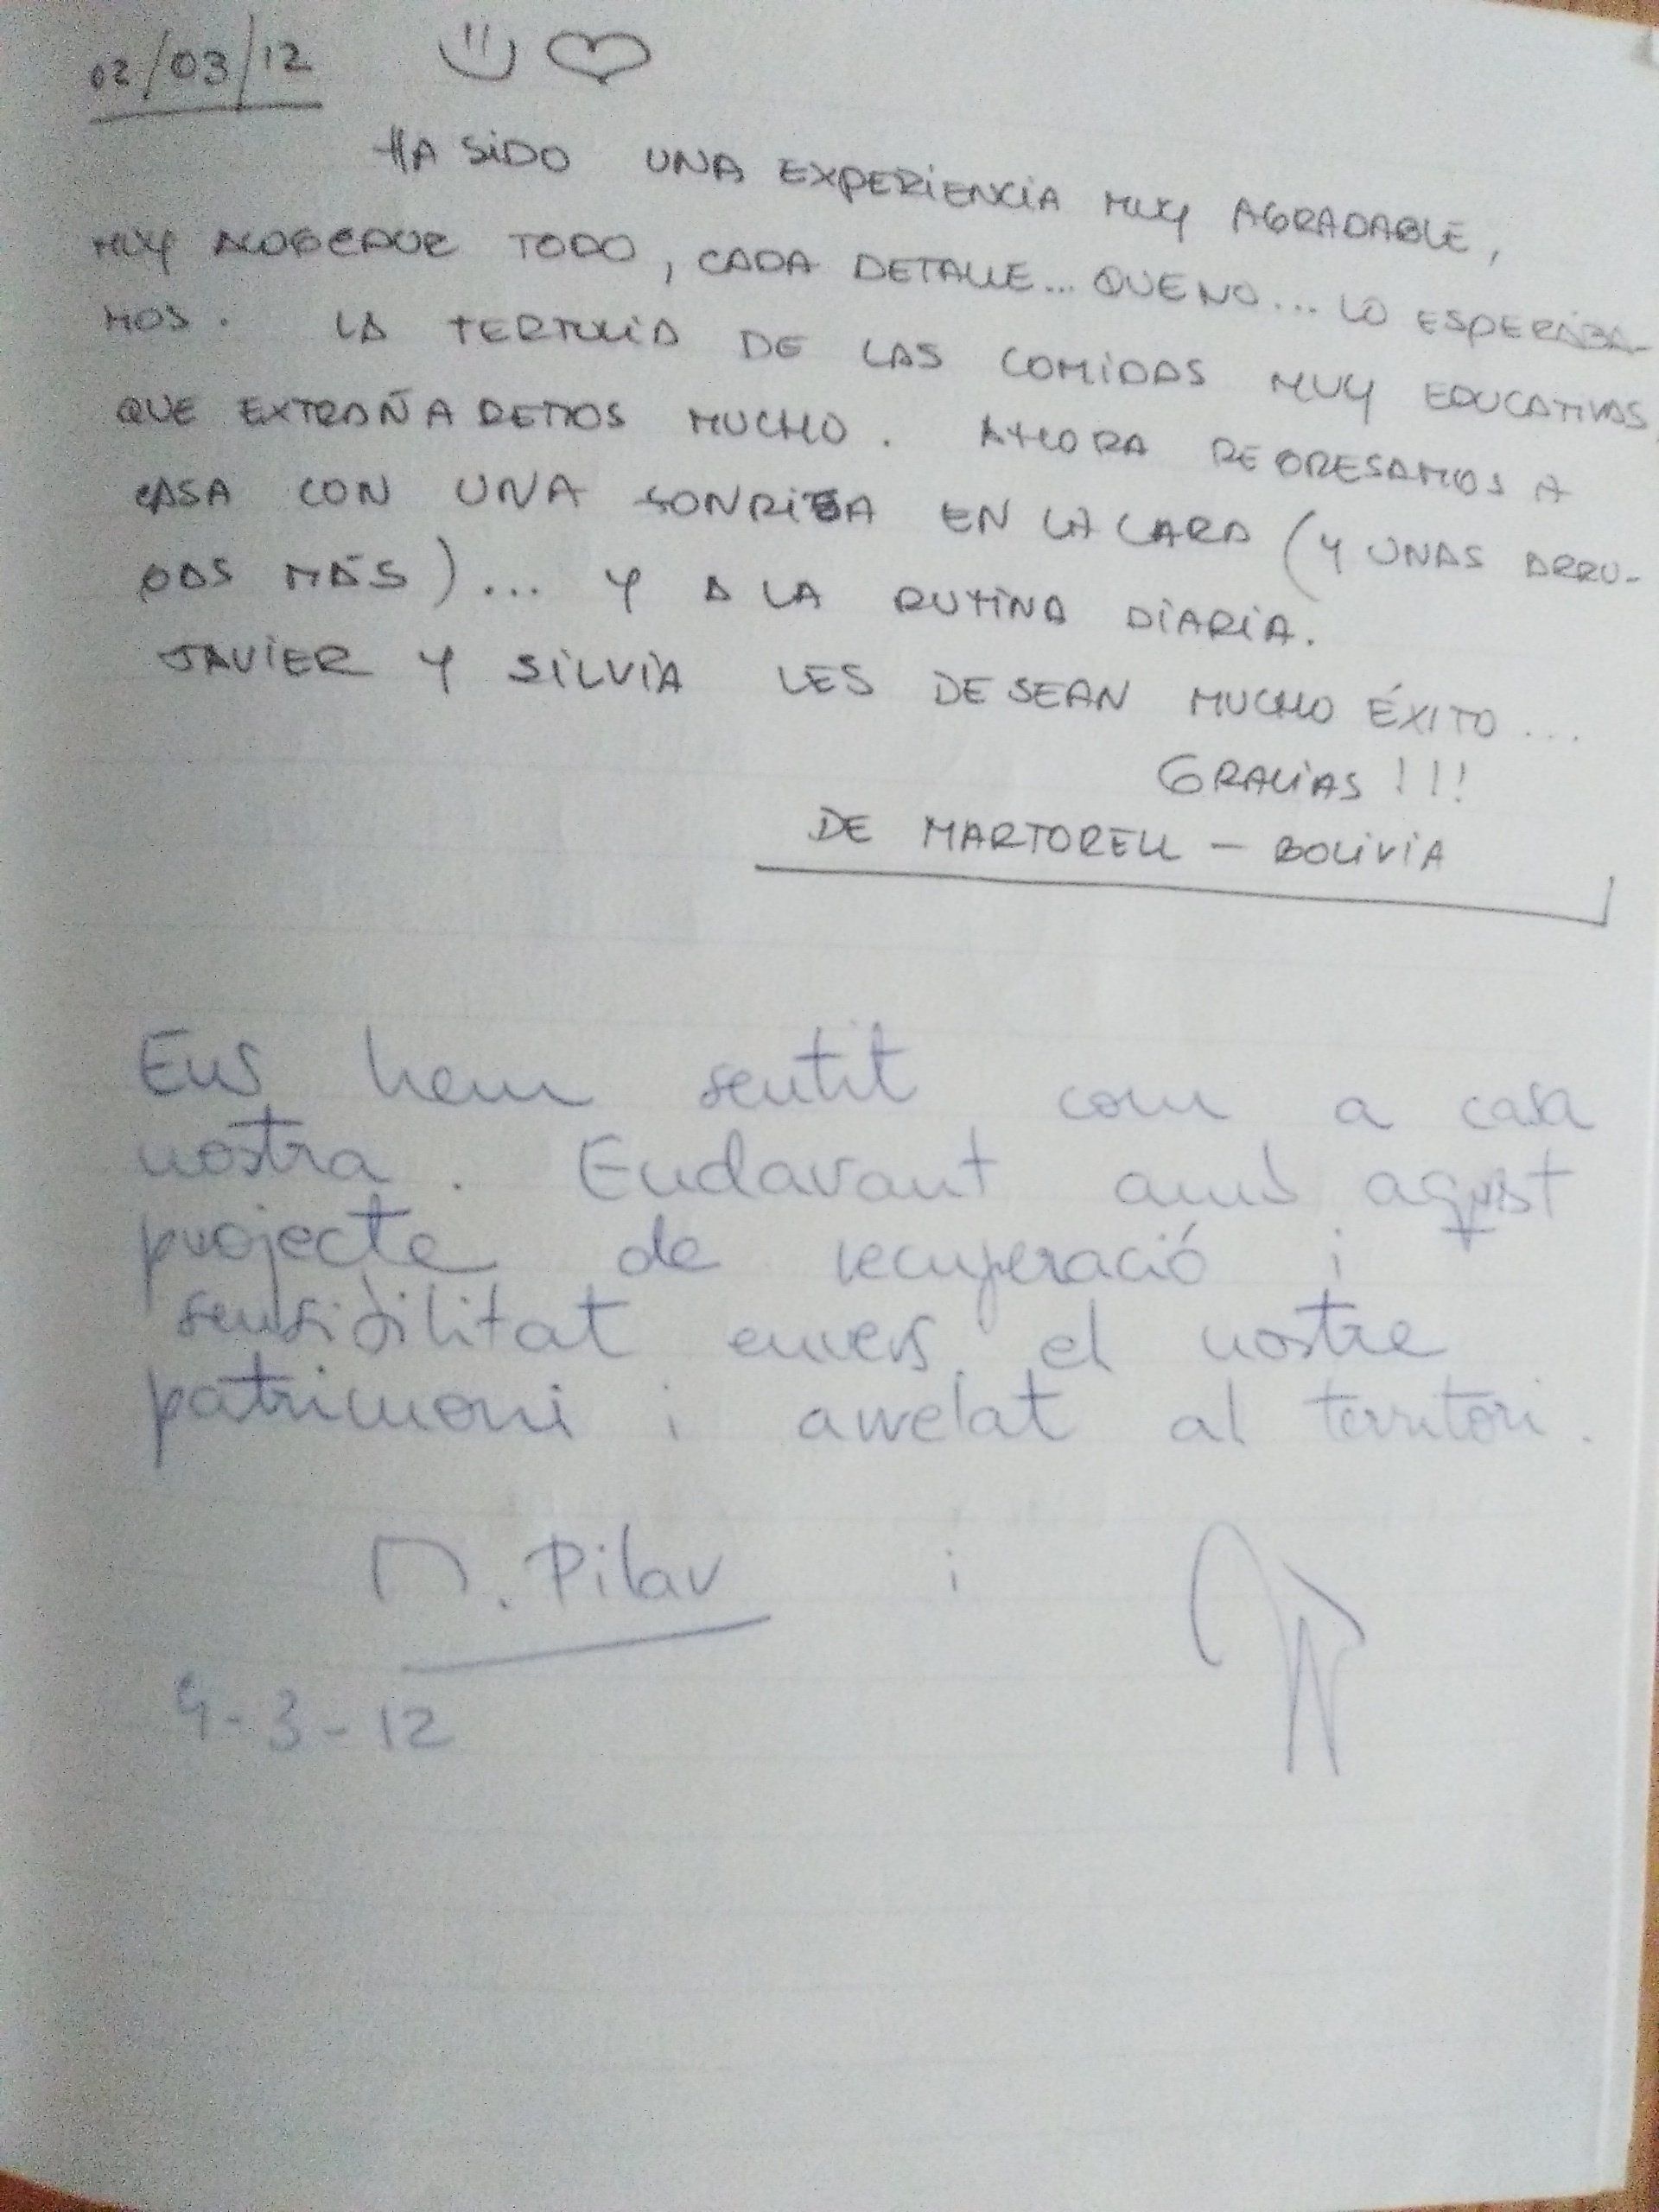 02/03/12
HA SIDO UNA EXPERIENCIA MUY AGRADABLE,
MUY ACOGEDOR TODO, CADA DETALLE... QUE NO... LO ESPERÁBA-
MOS. LA TERTULIA DE LAS COMIDAS MUY EDUCATIVAS,
QUE EXTRAÑAREMOS MUCHO. AHORA REGRESAMOS A
CASA CON UNA SONRISA EN LA CARA (Y UNAS ARRU-
GAS MÁS)... Y A LA RUTINA DIARIA.
JAVIER Y SILVIA LES DESEAN MUCHO ÉXITO...
GRACIAS!!!
DE MARTORELL - BOLIVIA
Ens hem sentit com a casa
nostra. Endavant amb aquest
projecte de recuperació i
sensibilitat envers el nostre
patrimoni i arrelat al territori.
M. Pilar i
4-3-12